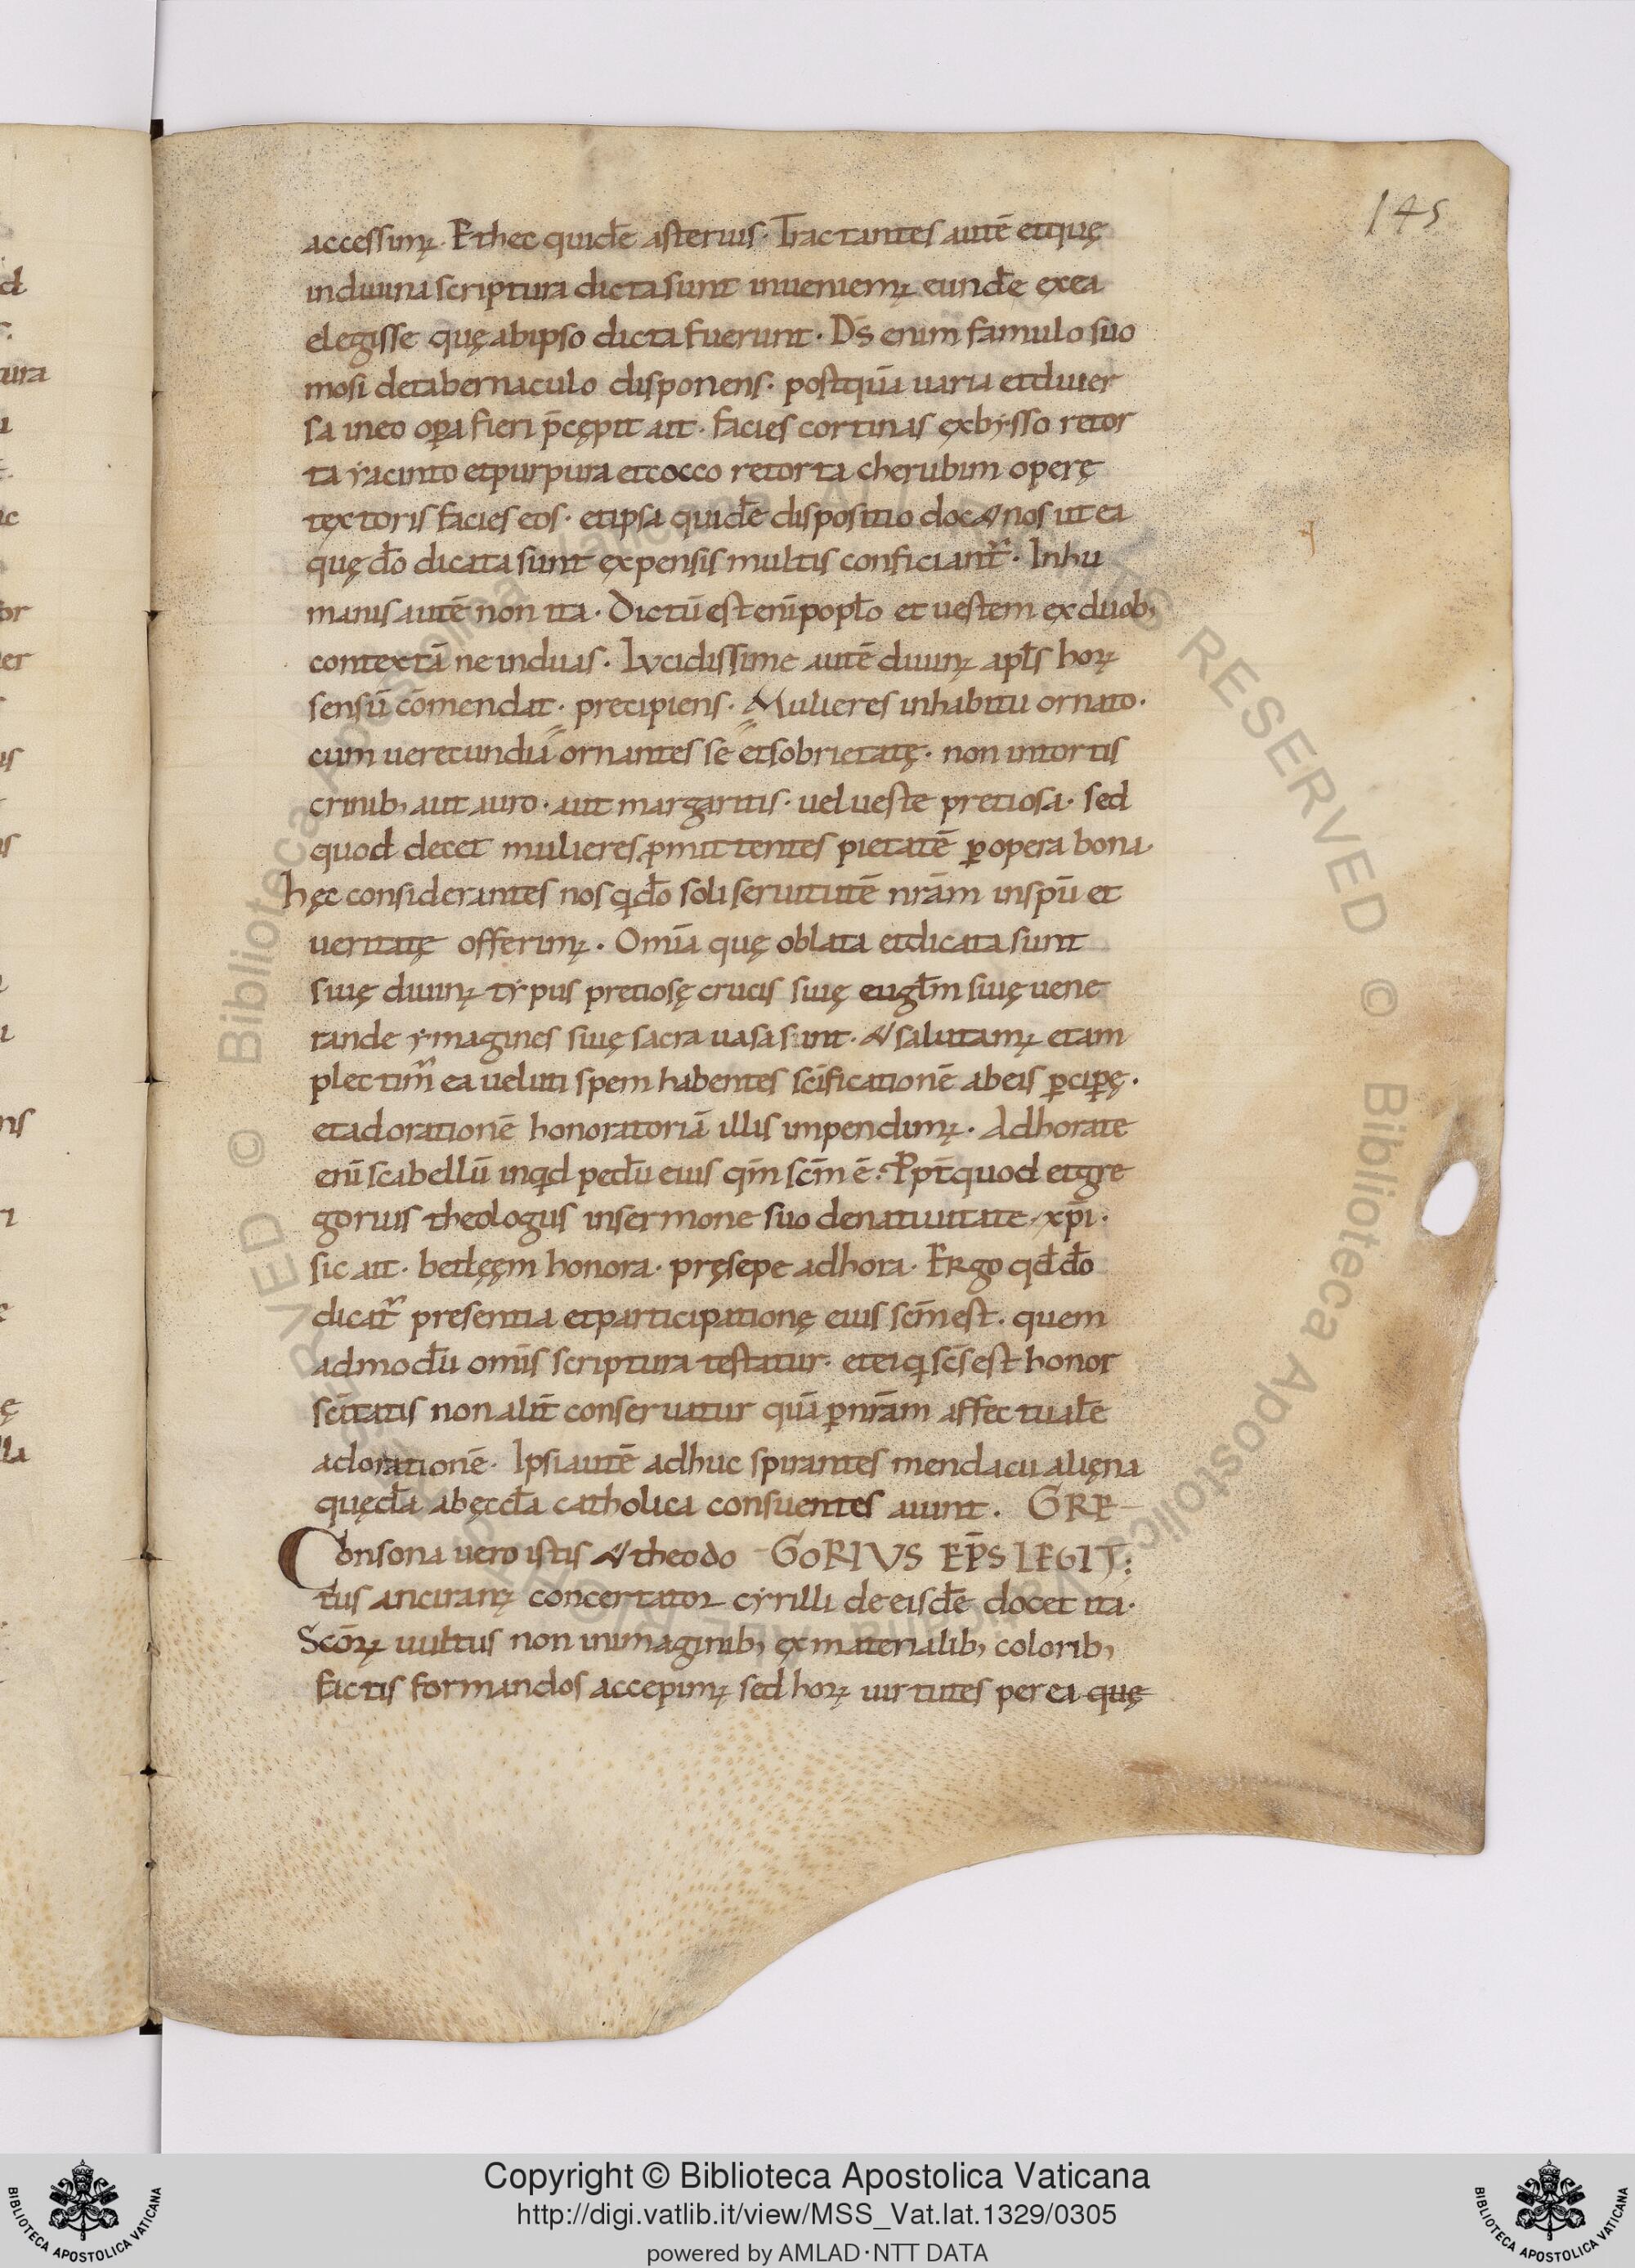 145
accessimꝰ. Et hec quidē asterius. Tractantes autē et quę
in diuina scriptura dicta sunt inueniemꝰ eundē ex ea
elegisse quę ab ipso dicta fuerunt. D̄s enim famulo suo
mosi de tabernaculo disponens. postquā uaria et diuer
sa in eo opa fieri p̄cępit ait. facies cortinas ex bysso retor
ta yacinto et purpura et cocco retorta cherubim operę
tęxtoris facies eos. et ipsa quidē dispositio docet nos ut ea
quę dō dicata sunt expensis multis conficiant̄. In hu
manis autē non ita. Dictū est enī poplo et uestem ex duob;
contextā ne induas. Lucidissime autē diuinꝰ apls hoꝝ
sensū cōmendat. precipiens. Mulieres in habitu ornato.
cum uerecundia ornantes se et sobrietatę. non intortis
crinib; aut auro. aut margaritis. uel ueste pretiosa. sed
quod decet mulieres ꝓmittentes pietatē ꝑ opera bona.
hęc considerantes nos q dō soli seruitutē nrām in spū et
ueritatę offerimꝰ. Omīa quę oblata et dicata sunt
siuę diuinꝰ typus pretiosę crucis siuę eugl̄m siuę uene
rande ymagines siuę sacra uasa sunt. et salutamꝰ et am
plectim̄ ea ueluti spem habentes sc̄ificationē ab eis ꝑciꝑę.
et adorationē honoratoriā illis impendimꝰ. Adhorate
enī scabellū inqd pedū eius qm̄ sc̄m ē. Ppt̄ quod et gre
gorius theologus in sermone suo de natiuitate xp̄i.
sic ait. betleęm honora. pręsepe adhora. Ergo qđ dō
dicat̄ presentia et participationę eius sc̄m est. quem
admodū omīs scriptura testatur. et ei q sc̄s est honor
sc̄itatis non alit̄ conseruatur quā ꝑ nrām affectualē
adorationē. Ipsi autē adhuc spirantes mendacii aliena
quędā ab ęccła catholica consuentes aiunt. GRE
Consona uero istis et theodo GORIUS EP̄S LEGIT:
tus anciranꝰ concertator cyrilli de eisdē docet ita.
Sc̄oꝝ uultus non in imaginib; ex materialib; colorib;
factis formandos accepimꝰ sed hoꝝ uirtutes per ea quę
Copyright © Biblioteca Apostolica Vaticana
http://digi.vatlib.it/view/MSS_Vat.lat.1329/0305
powered by AMLAD·NTT DATA